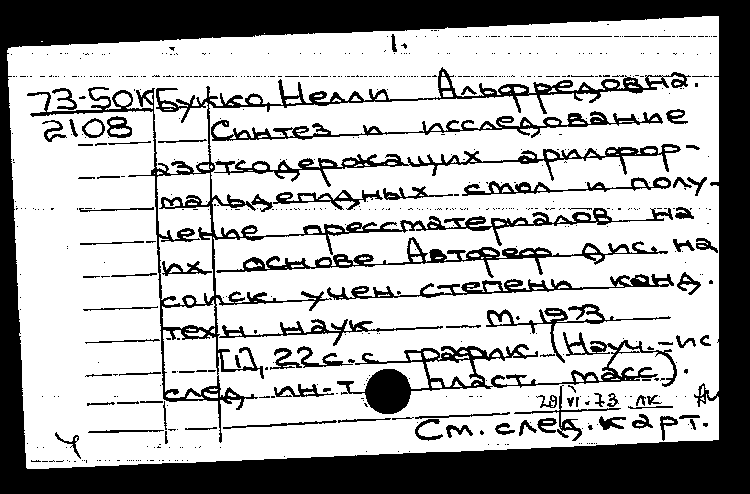 1.
73-50К Букко, Нелли Альфредовна.
2108 Синтез и исследование
азотсодерожащих арилфор-
мальдегидных смол и полу-
чение прессматериалов на
их основе. Автореф. дис. на
соиск. учен. степени канд.
техн. наук. М., 1973.
[1], 22 с. с график. (Науч.-ис
след. ин-т пласт. масс.).
28/VI-73 лк
См. след. карт.